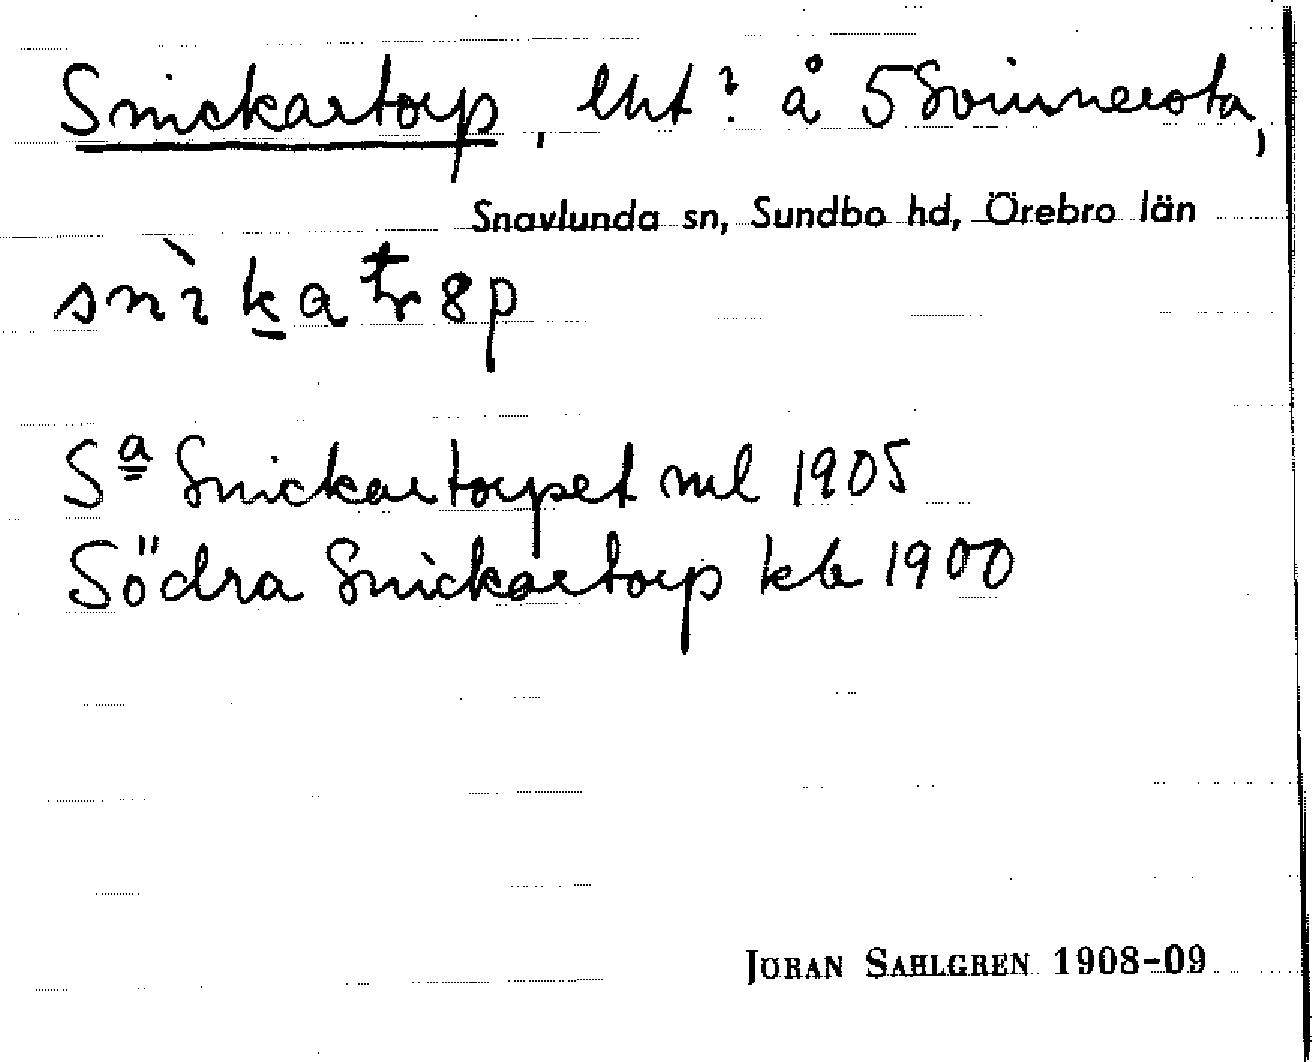 Snickartorp, lht? å 5 Svinnersta,
Snavlunda sn, Sundbo hd, Örebro län
Sª Snickartorpet ml 1905
Södra Snickartorp kb 1900
JÖRAN SAHLGREN 1908-09